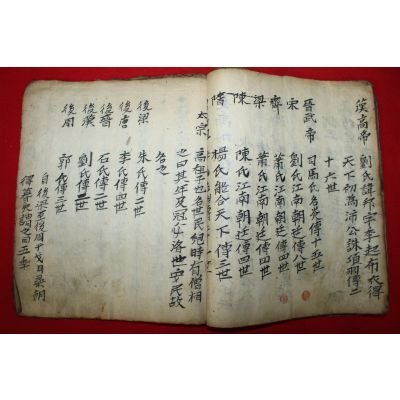 漢高帝
劉氏諱邦字季起布衣得
天下初爲沛公誅項羽傳二
十六世
晉武帝
司馬氏名炎傳十五世
宋
劉氏江南朝廷傳八世
齊
蕭氏江南朝廷傳四世
梁
蕭氏江南朝廷傳四世
陳
陳氏江南朝廷傳四世
隋
楊氏能合天下傳三世
太宗
高祖子也名世民幼時有僧相
之曰其年及冠必濟世安民故
名之
後梁
朱氏傳二世
後唐
李氏傳四世
後晉
石氏傳二世
後漢
劉氏傳二世
後周
郭氏傳三世
自後梁至後周十戈日梁朝
得晉漢謂之曰五季